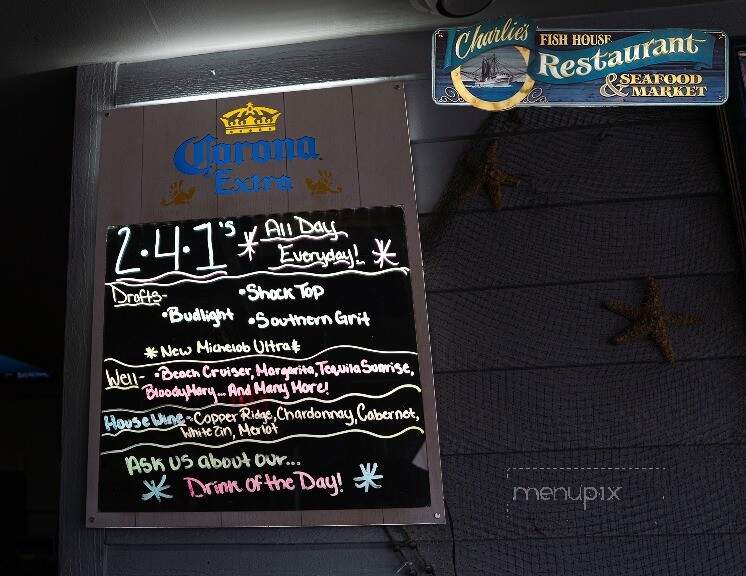 Charlie's
FISH HOUSE
Restaurant
& SEAFOOD
MARKET
Corona
Extra
2·4·1's * All Day
Everyday! *
Drafts-
•Shock Top
•Budlight •Southern Grit
* New Michelob Ultra *
Well- •Beach Cruiser, Margarita, Tequila Sunrise,
Bloody Mary... And Many More!
House Wine - Copper Ridge, Chardonnay, Cabernet,
White Zin, Merlot
Ask us about our...
* Drink of the Day! *
menupix